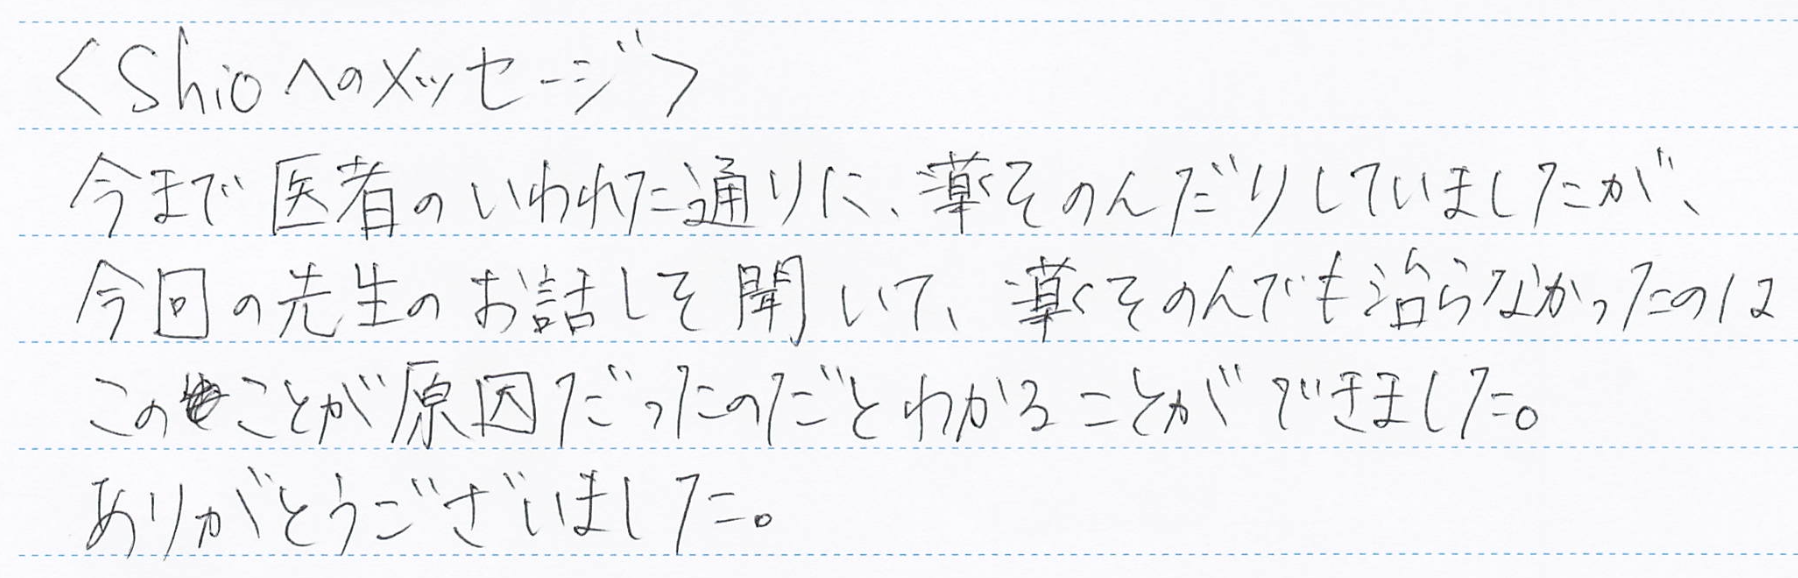 <Shioへのメッセージ>
今まで医者のいわれた通りに、薬をのんだりしていましたが、
今回の先生のお話しを聞いて、薬をのんでも治らなかったのは
このことが原因だったのだとわかることができました。
ありがとうございました。